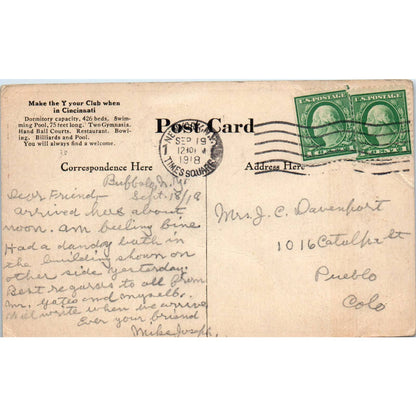 Make the Y your Club when
in Cincinnati
Dormitory capacity, 426 beds, Swim-
ming Pool, 75 feet long. Two Gymnasia.
Hand Ball Courts. Restaurant. Bowl-
ing. Billiards and Pool.
You will always find a welcome.
Post Card
NEW YORK, N.Y.
1
SEP 19
1918
TIMES SQUARE
U.S. POSTAGE
U.S. POSTAGE
Correspondence Here
Address Here
Buffalo, N.Y.
Sept. 18/18
Dear Friend
arrived here about
noon. am feeling fine
Had a dandy bath in
the building shown on
other side yesterday.
Best regards to all from
Mr. Yates and myself.
will write when we arrive,
Ever your friend
Mike Joseph,
Mrs J. C. Davenport
1016 Catalpa St
Pueblo
Colo